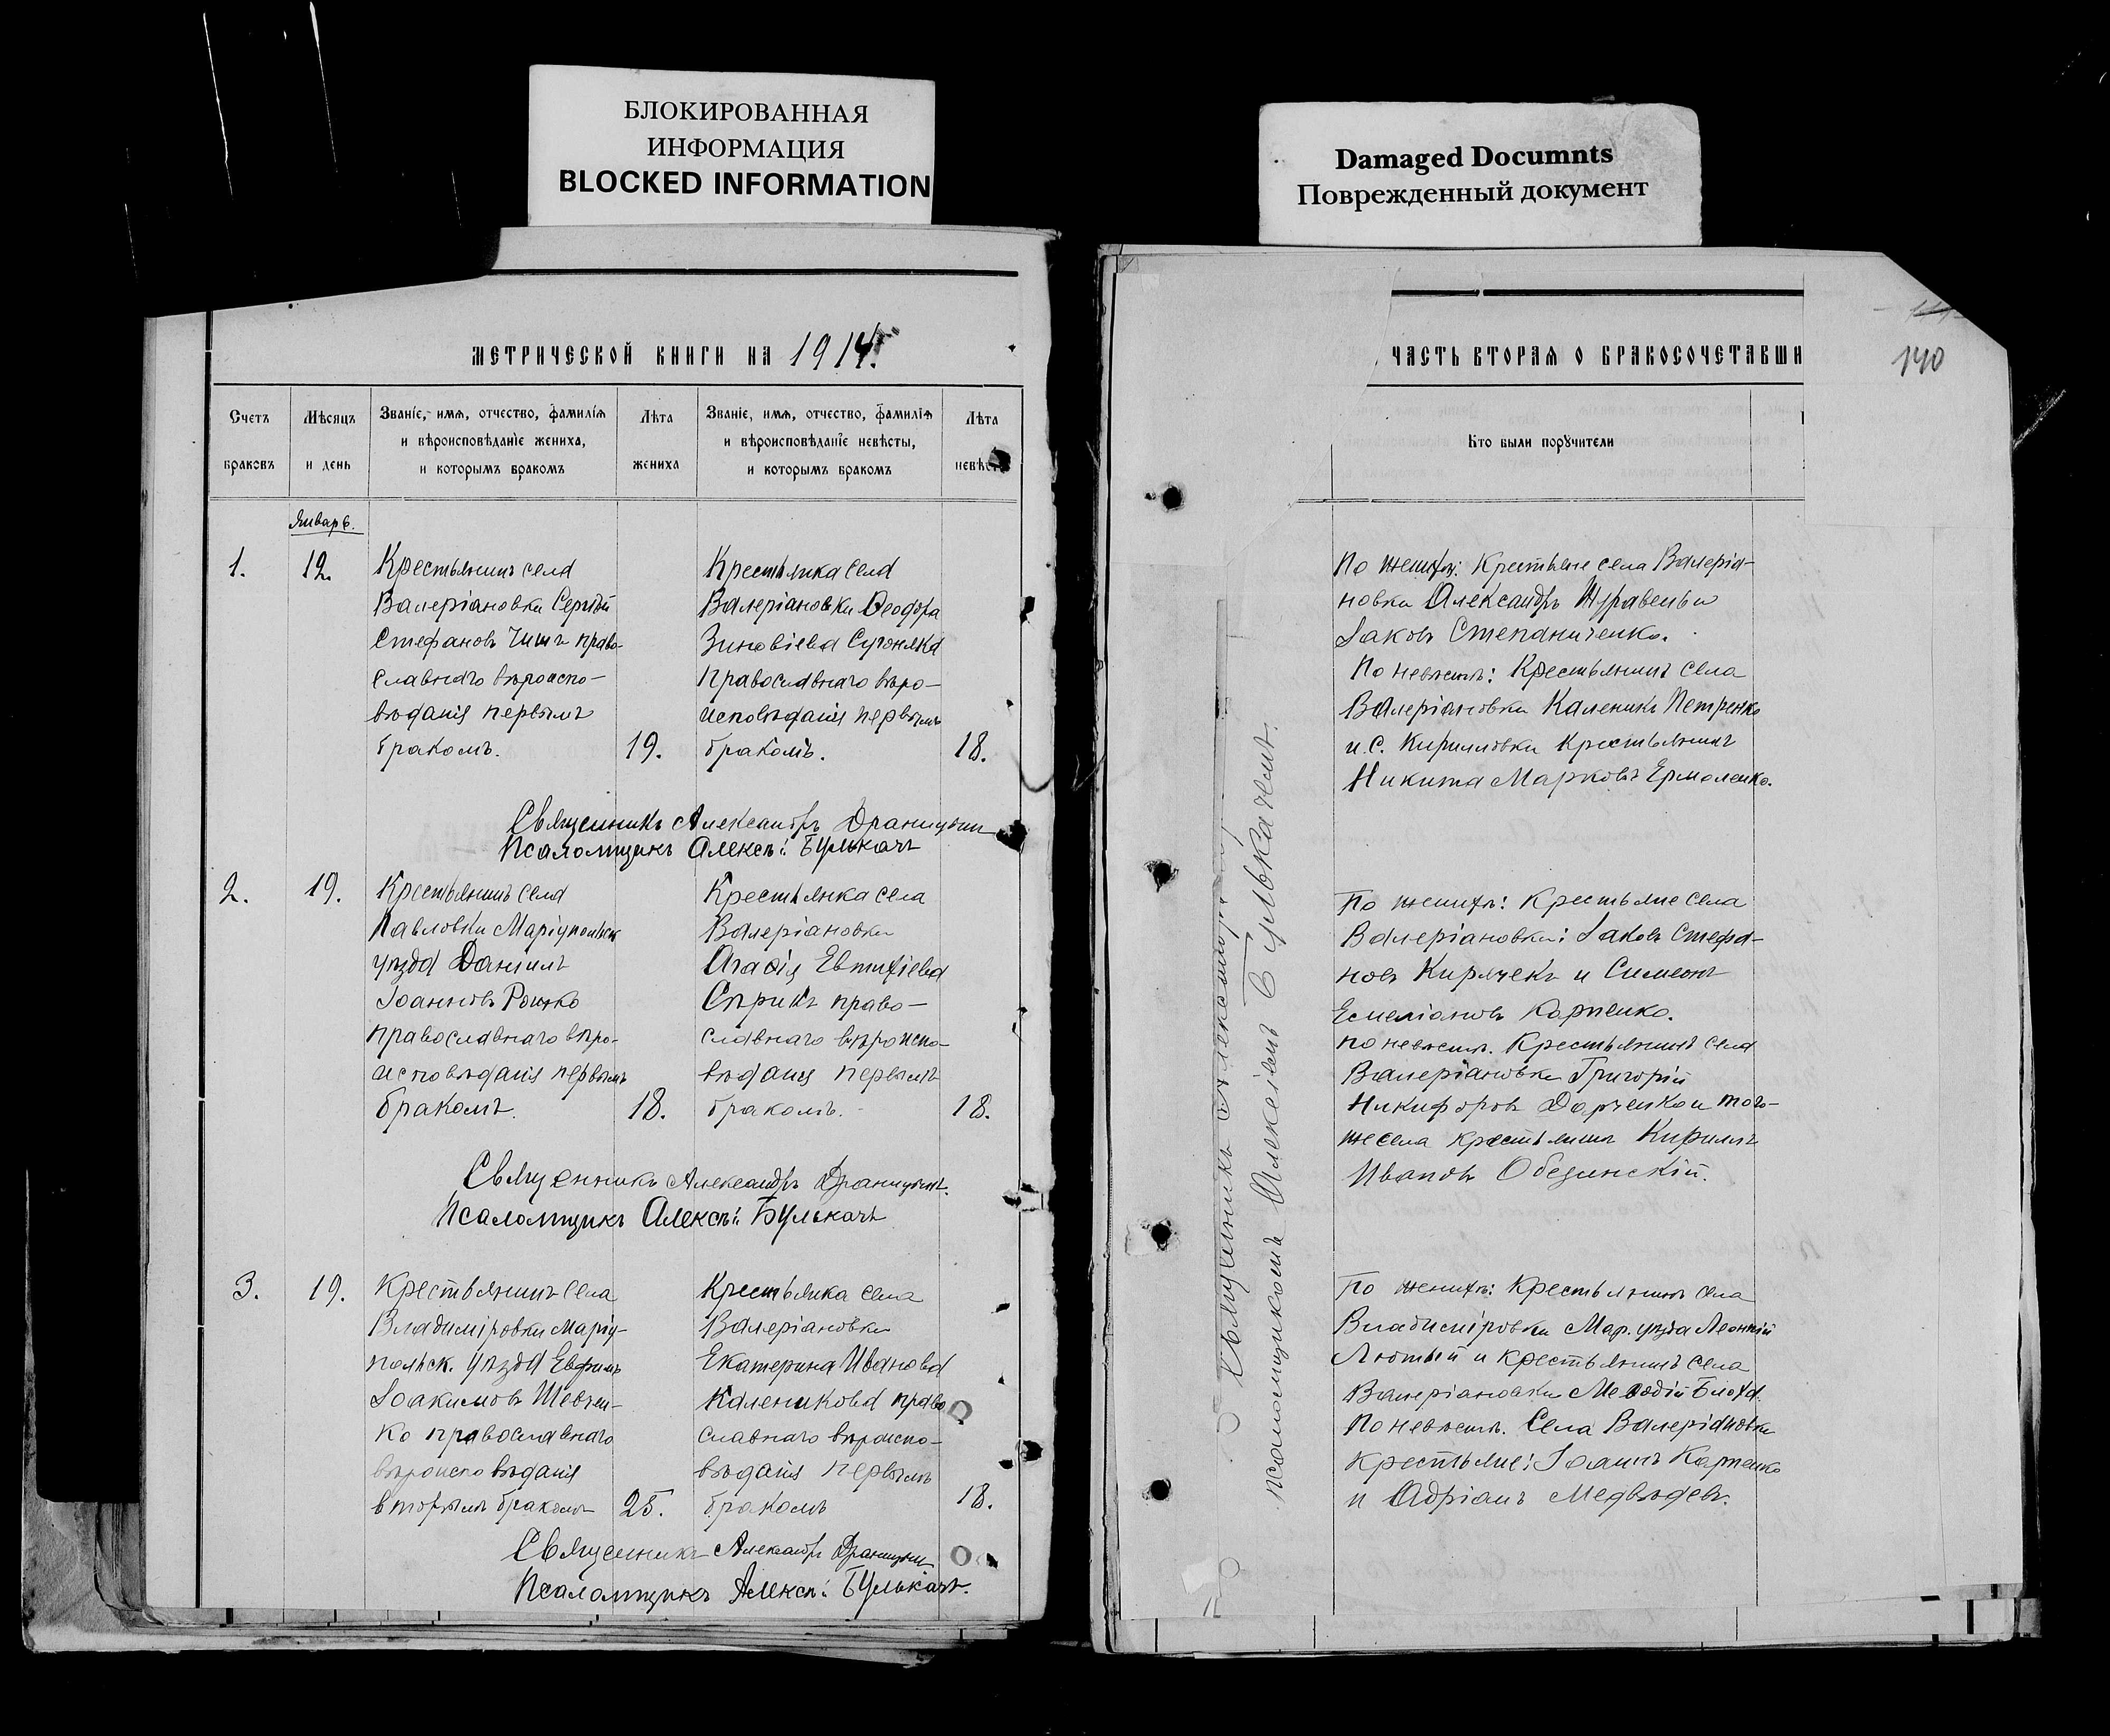 БЛОКИРОВАННАЯ
ИНФОРМАЦИЯ
BLOCKED INFORMATION
МЕТРИЧЕСКОЙ КНИГИ НА 1914
Счетъ браковъ
Мѣсяцъ и день
Званіе, имя, отчество, фамилія
и вѣроисповѣданіе жениха,
и которымъ бракомъ
Лѣта жениха
Званіе, имя, отчество, фамилія
и вѣроисповѣданіе невѣсты,
и которымъ бракомъ
Лѣта
Январь.
1.
12.
Крестьянинъ села
Валеріановки Сергѣй
Стефановъ Чишъ право-
славнаго вѣроиспо-
вѣданія первымъ
бракомъ.
19.
Крестьянка села
Валеріановки Ѳеодора
Зиновіева Сугоняка
православнаго вѣро-
исповѣданія первымъ
бракомъ.
18.
Священникъ Александръ Драницынъ
Псаломщикъ Алексѣй Булькачъ
2.
19.
Крестьянинъ села
Павловки Маріупольск
уѣзда Даніилъ
Іоанновъ
православнаго вѣро-
исповѣданія первымъ
бракомъ.
18.
Крестьянка села
Валеріановки
Агаѳія Евтихіева
Сѣрикъ право-
славнаго вѣроиспо-
вѣданія первымъ
бракомъ.
18.
Священникъ Александръ Драницынъ.
Псаломщикъ Алексѣй Булькачъ
3.
19.
Крестьянинъ села
Владиміровки Маріу-
польск. уѣзда Евфимъ
Іоакимовъ Шевчен-
ко православнаго
вѣроисповѣданія
вторымъ бракомъ
25.
Крестьянка села
Валеріановки
Екатерина Иванова
Каленикова право
славнаго вѣроиспо-
вѣданія первымъ
бракомъ
18.
Священникъ Александръ Драницынъ
Псаломщикъ Алексѣй Булькачъ.
Damaged Documnts
Поврежденный документ
140
ЧАСТЬ ВТОРАЯ О БРАКОСОЧЕТАВШИ
Кто были поручители
По женихѣ: Крестьяне села Валеріа-
новки Александръ Журавель и
Іаковъ Степаниченко.
По невѣстѣ: Крестьянинъ села
Валеріановки Каленикъ Петренко
и с. Кирилловки крестьянинъ
Никита Марковъ Ермоленко.
По женихѣ: Крестьяне села
Валеріановки: Іаковъ Стефа-
новъ Кирячекъ и Симеонъ
Емеліановъ Карпенко.
по невѣстѣ. Крестьянинъ села
Валеріановки Григорій
Никифоровъ и того-
же села крестьянинъ Кириллъ
Ивановъ
По женихѣ: Крестьянинъ села
Владиміровки Мар. уѣзда Леонтій
Лютый и крестьянинъ села
Валеріановки Меѳодій Блоха.
По невѣстѣ. Села Валеріановки
крестьяне: Іоаннъ Карпенко
и Адріанъ Медвѣдевъ.
Священникъ Александръ
псаломщикомъ Алексіемъ Булькачемъ.